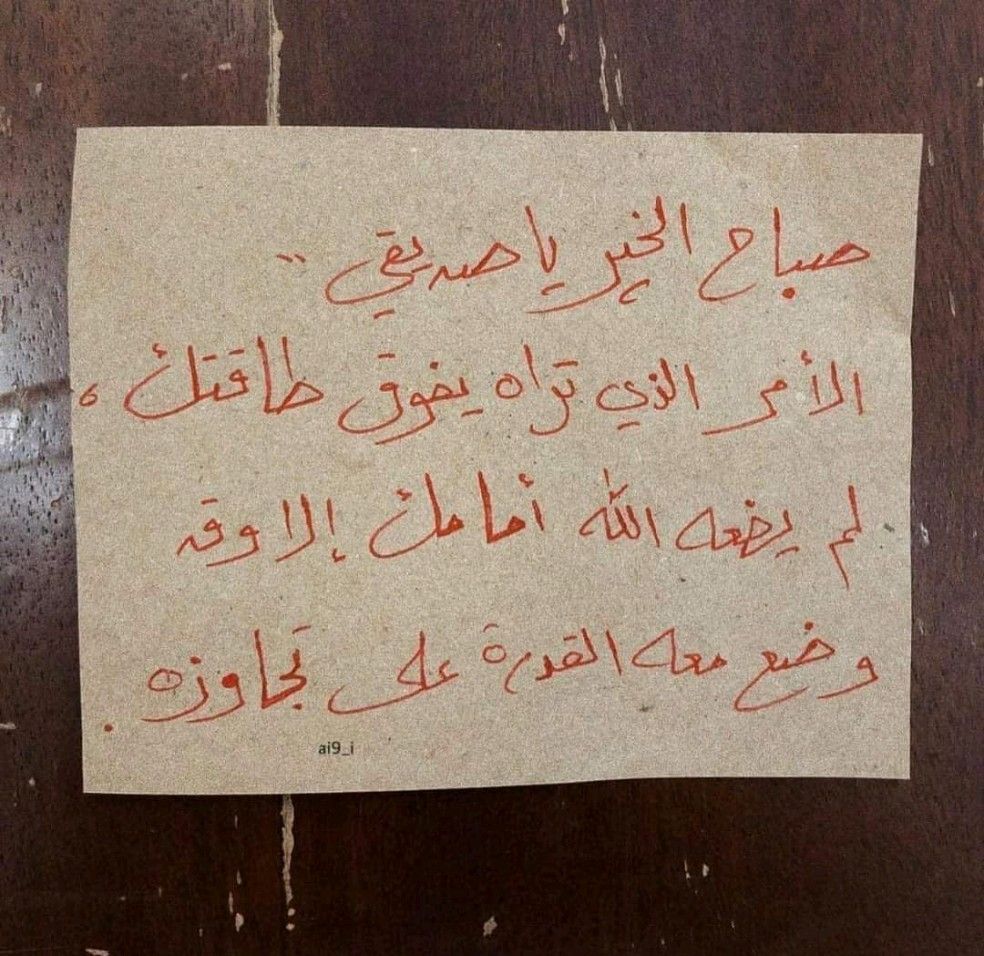 صباح الخير يا صديقي ..
الأمر الذي تراه يفوق طاقتك ،
لم يضعه الله أمامك إلا وقد
وضع معه القدرة على تجاوزه .
ai9_i